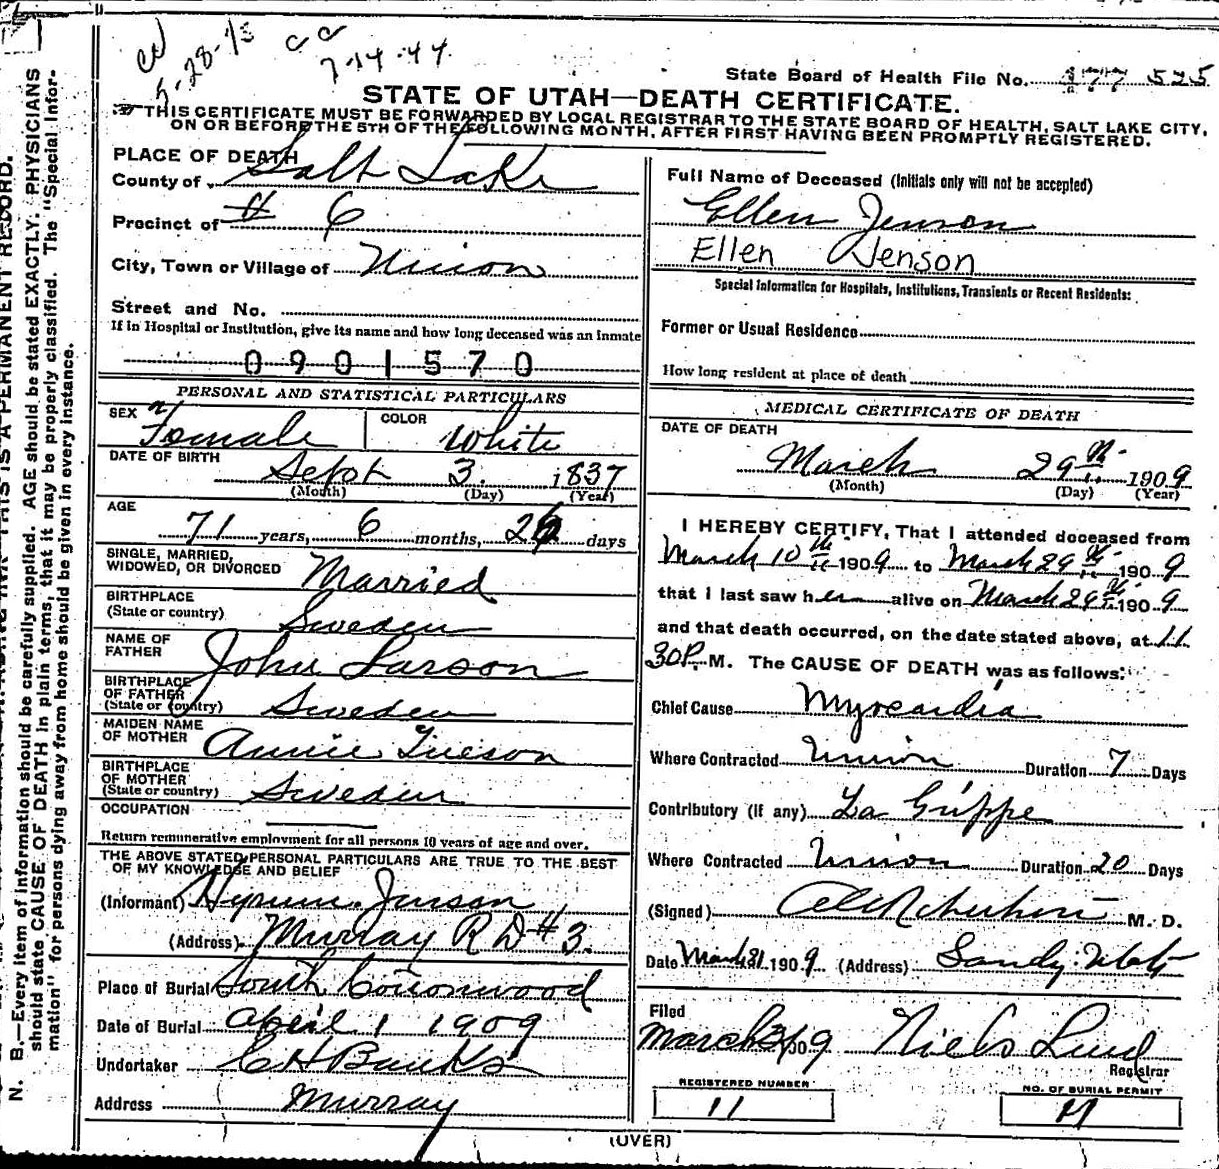 7-14-44
State Board of Health File No. 177 525
STATE OF UTAH—DEATH CERTIFICATE.
THIS CERTIFICATE MUST BE FORWARDED BY LOCAL REGISTRAR TO THE STATE BOARD OF HEALTH, SALT LAKE CITY,
ON OR BEFORE THE 5TH OF THE FOLLOWING MONTH, AFTER FIRST HAVING BEEN PROMPTLY REGISTERED.
N. B.—Every item of information should be carefully supplied. AGE should be stated EXACTLY. PHYSICIANS
should state CAUSE OF DEATH in plain terms, that it may be properly classified. The "Special Infor-
mation" for persons dying away from home should be given in every instance.
PLACE OF DEATH
County of Salt Lake
Precinct of # 6
City, Town or Village of Union
Street and No.
If in Hospital or Institution, give its name and how long deceased was an inmate
0901570
PERSONAL AND STATISTICAL PARTICULARS
SEX Female COLOR White
DATE OF BIRTH
Sept 3. 1837
(Month) (Day) (Year)
AGE
71 years, 6 months, 26 days
SINGLE, MARRIED,
WIDOWED, OR DIVORCED Married
BIRTHPLACE
(State or country) Sweden
NAME OF
FATHER John Larson
BIRTHPLACE
OF FATHER
(State or country) Sweden
MAIDEN NAME
OF MOTHER Annie
BIRTHPLACE
OF MOTHER
(State or country) Sweden
OCCUPATION
Return remunerative employment for all persons 10 years of age and over.
THE ABOVE STATED PERSONAL PARTICULARS ARE TRUE TO THE BEST
OF MY KNOWLEDGE AND BELIEF
(Informant) Hyrum Jenson
(Address) Murray R D #3.
Place of Burial South Cottonwood
Date of Burial April 1 1909
Undertaker C H Banks
Address Murray
Full Name of Deceased (Initials only will not be accepted)
Ellen Jenson
Ellen Jenson
Special Information for Hospitals, Institutions, Transients or Recent Residents:
Former or Usual Residence
How long resident at place of death
MEDICAL CERTIFICATE OF DEATH
DATE OF DEATH
March 29th 1909
(Month) (Day) (Year)
I HEREBY CERTIFY, That I attended deceased from
March 10th 1909 to March 29th 1909
that I last saw her alive on March 29th 1909
and that death occurred, on the date stated above, at 11
30 P. M. The CAUSE OF DEATH was as follows:
Chief Cause Myocardia
Where Contracted Union Duration 7 Days
Contributory (if any) La Grippe
Where Contracted Union Duration 20 Days
(Signed) M. D.
Date March 31 1909 (Address) Sandy Utah
Filed
March 31 09 Niels Lund
Registrar
REGISTERED NUMBER
11
NO. OF BURIAL PERMIT
11
(OVER)